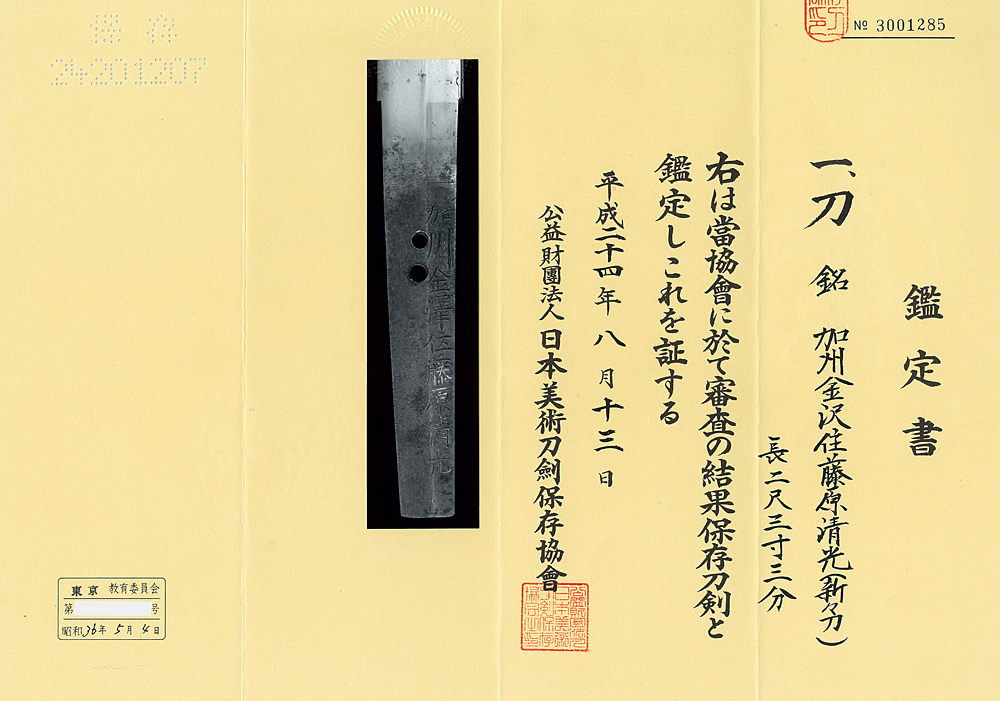 № 3001285
鑑定書
一、刀 銘 加州金沢住藤原清光(新々刀)
長二尺三寸三分
右は當協會に於て審査の結果保存刀剣と
鑑定しこれを証する
平成二十四年八月十三日
公益財團法人日本美術刀劍保存協會
加州金澤住藤原清光
保存
24201207
東京 教育委員会
第 号
昭和36年5月4日